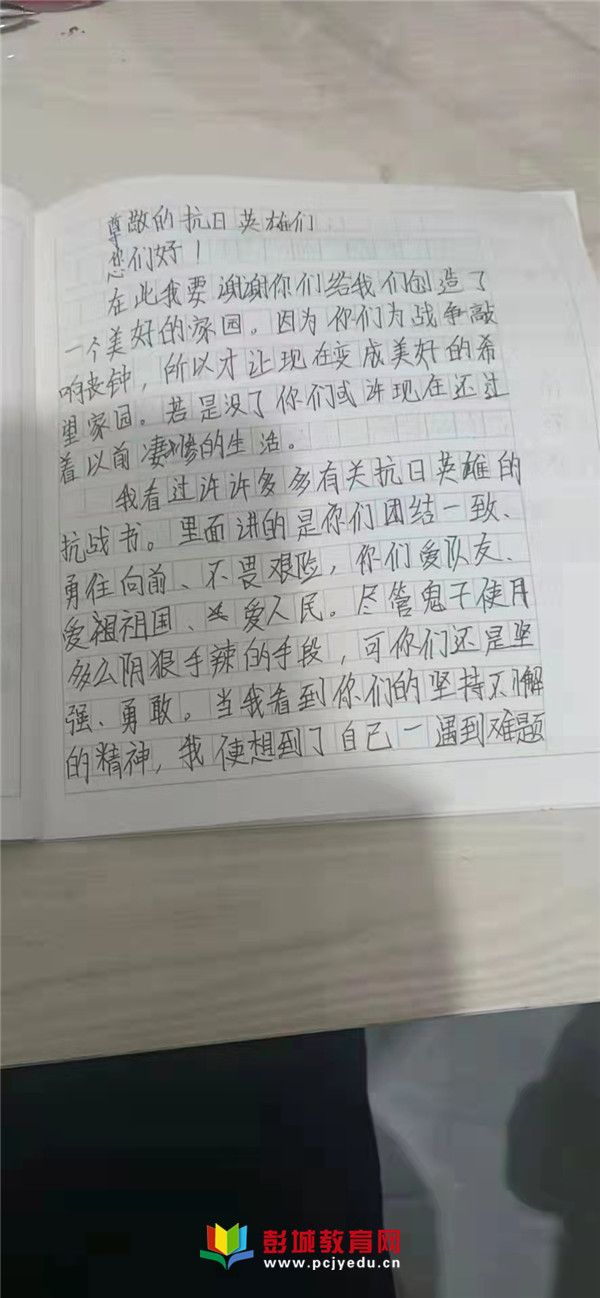 尊敬的抗日英雄们
您们好！
在此我要谢谢你们给我们创造了
一个美好的家园。因为你们为战争敲
响丧钟，所以才让现在变成美好的希
望家园。若是没了你们或许现在还过
着以前凄惨的生活。
我看过许许多多有关抗日英雄的
抗战书。里面讲的是你们团结一致、
勇住向前、不畏艰险，你们爱队友、
爱祖祖国、爱人民。尽管鬼子使用
多么阴狠手辣的手段，可你们还是坚
强、勇敢。当我看到你们的坚持不懈
的精神，我便想到了自己一遇到难题
彭城教育网
www.pcjyedu.cn